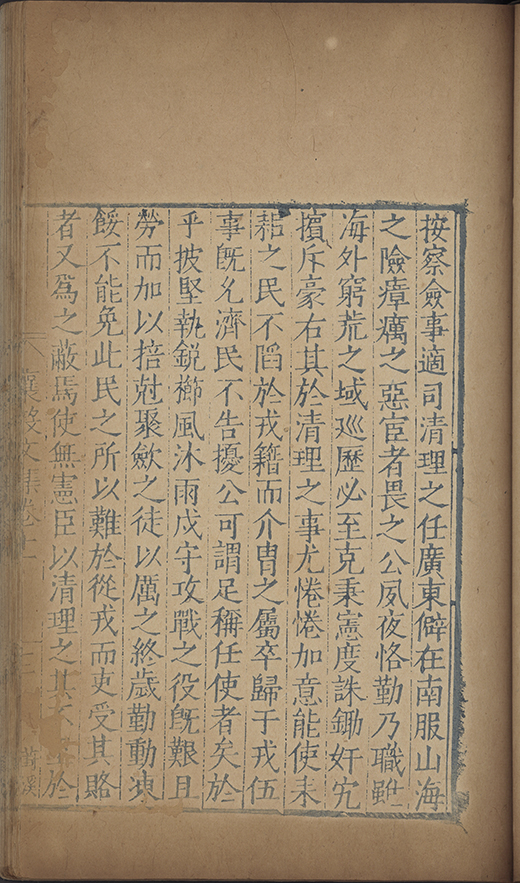 按察僉事適司清理之任廣東僻在南服山海
之險瘴癘之惡宦者畏之公夙夜恪勤乃職雖
海外窮荒之域巡歷必至克秉憲度誅鋤奸宄
擯斥豪右其於清理之事尤惓惓加意能使耒
耜之民不陷於戎籍而介冑之屬卒歸于戎伍
事既允濟民不告擾公可謂足稱任使者矣於
乎披堅執銳櫛風沐雨戍守攻戰之役既艱且
勞而加以掊尅聚歛之徒以厲之終歲勤動凍
餒不能免此民之所以難於從戎而吏受其賂
者又爲之蔽焉使無憲臣以清理之其不於
襄毅文集卷十